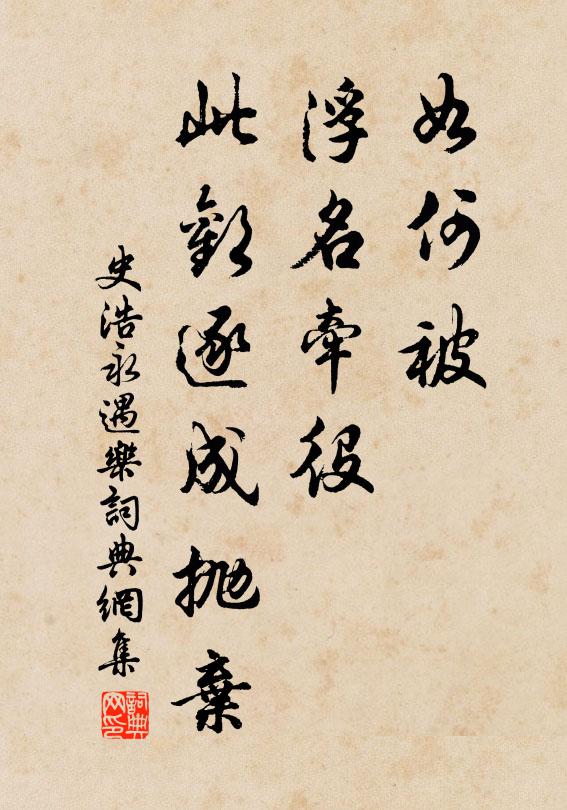 如何被
浮名牽役
此歡遂成拋棄
史浩永遇樂詞典網集
詞典网印